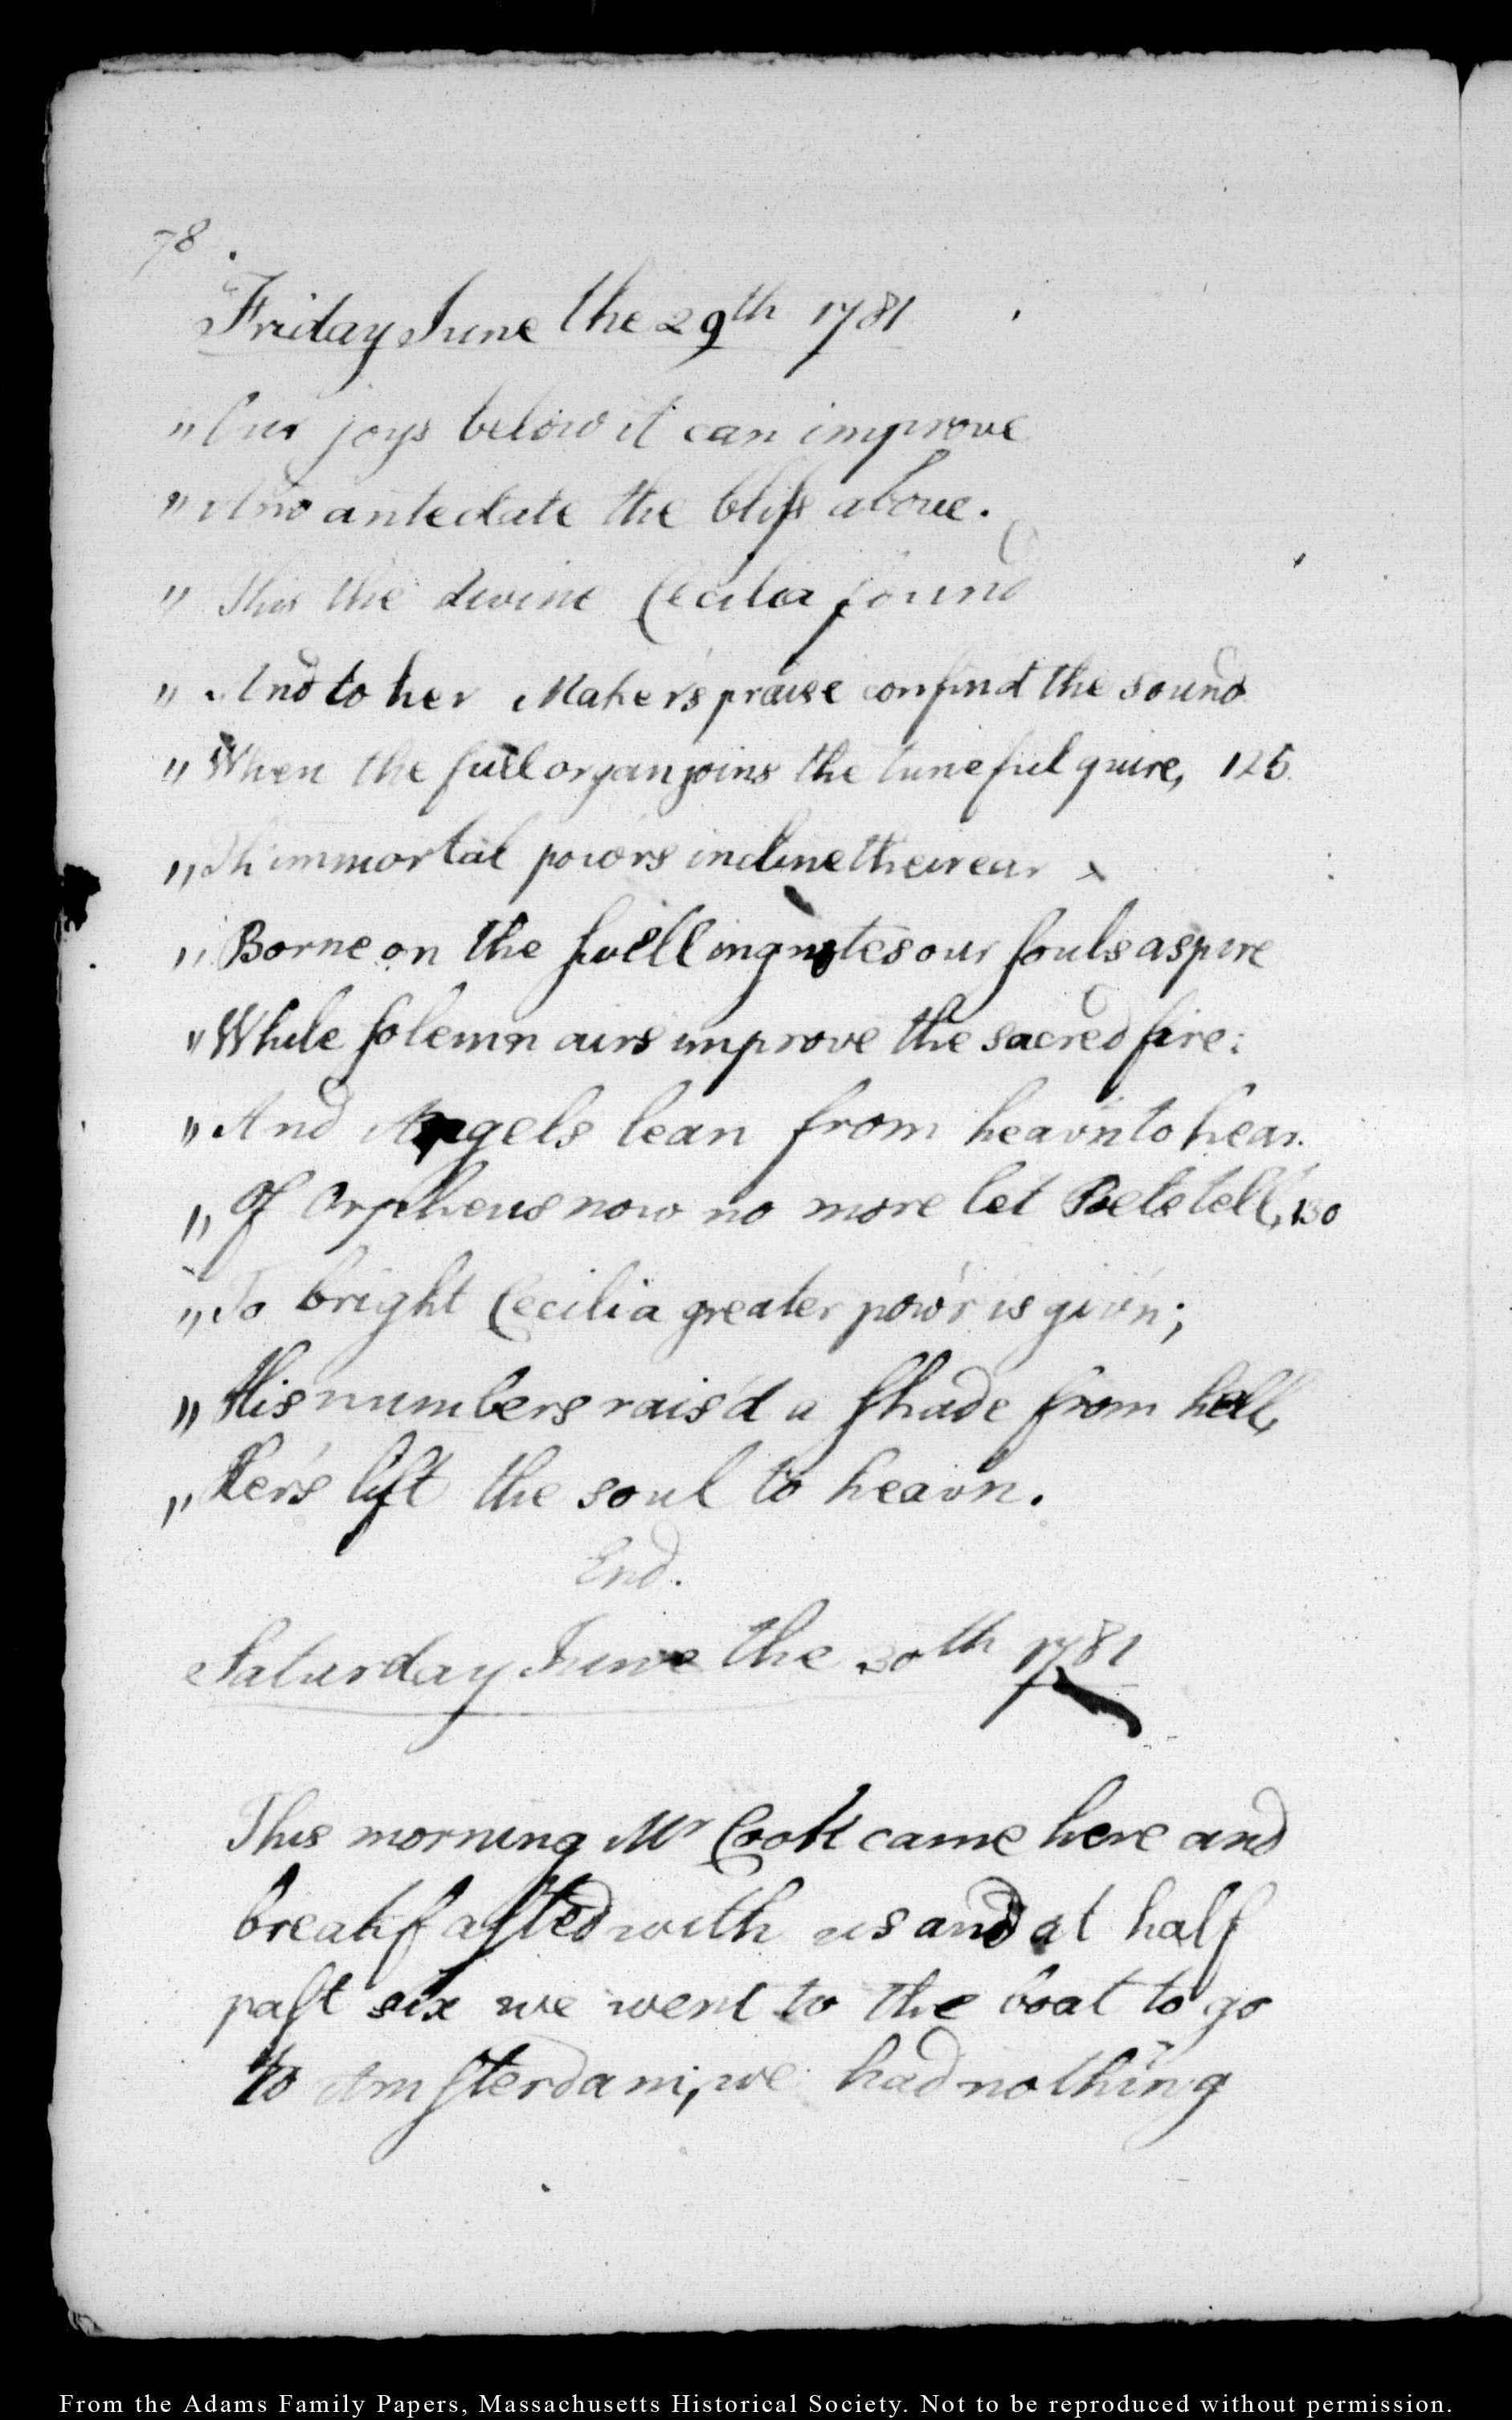 78.
Friday June the 29th 1781
" Our joys below it can improve
" And antedate the bliss above.
" This the divine Cecilia found
" And to her Maker's praise confin'd the sound
" When the full organ joins the tuneful quire, 125.
" Th' immortal pow'rs incline their ear x
" Borne on the swelling notes our souls aspire
" While solemn airs improve the sacred fire:
" And Angels lean from heav'n to hear.
" Of Orpheus now no more let Poets tell, 130
" To bright Cecilia greater pow'r is giv'n;
" His numbers rais'd a shade from hell,
" Her's lift the soul to heav'n.
End.
Saturday June the 30th 1781
This morning Mr Cook came here and
breakfasted with us and at half
past six we went to the boat to go
to Amsterdam; we had nothing
From the Adams Family Papers, Massachusetts Historical Society. Not to be reproduced without permission.